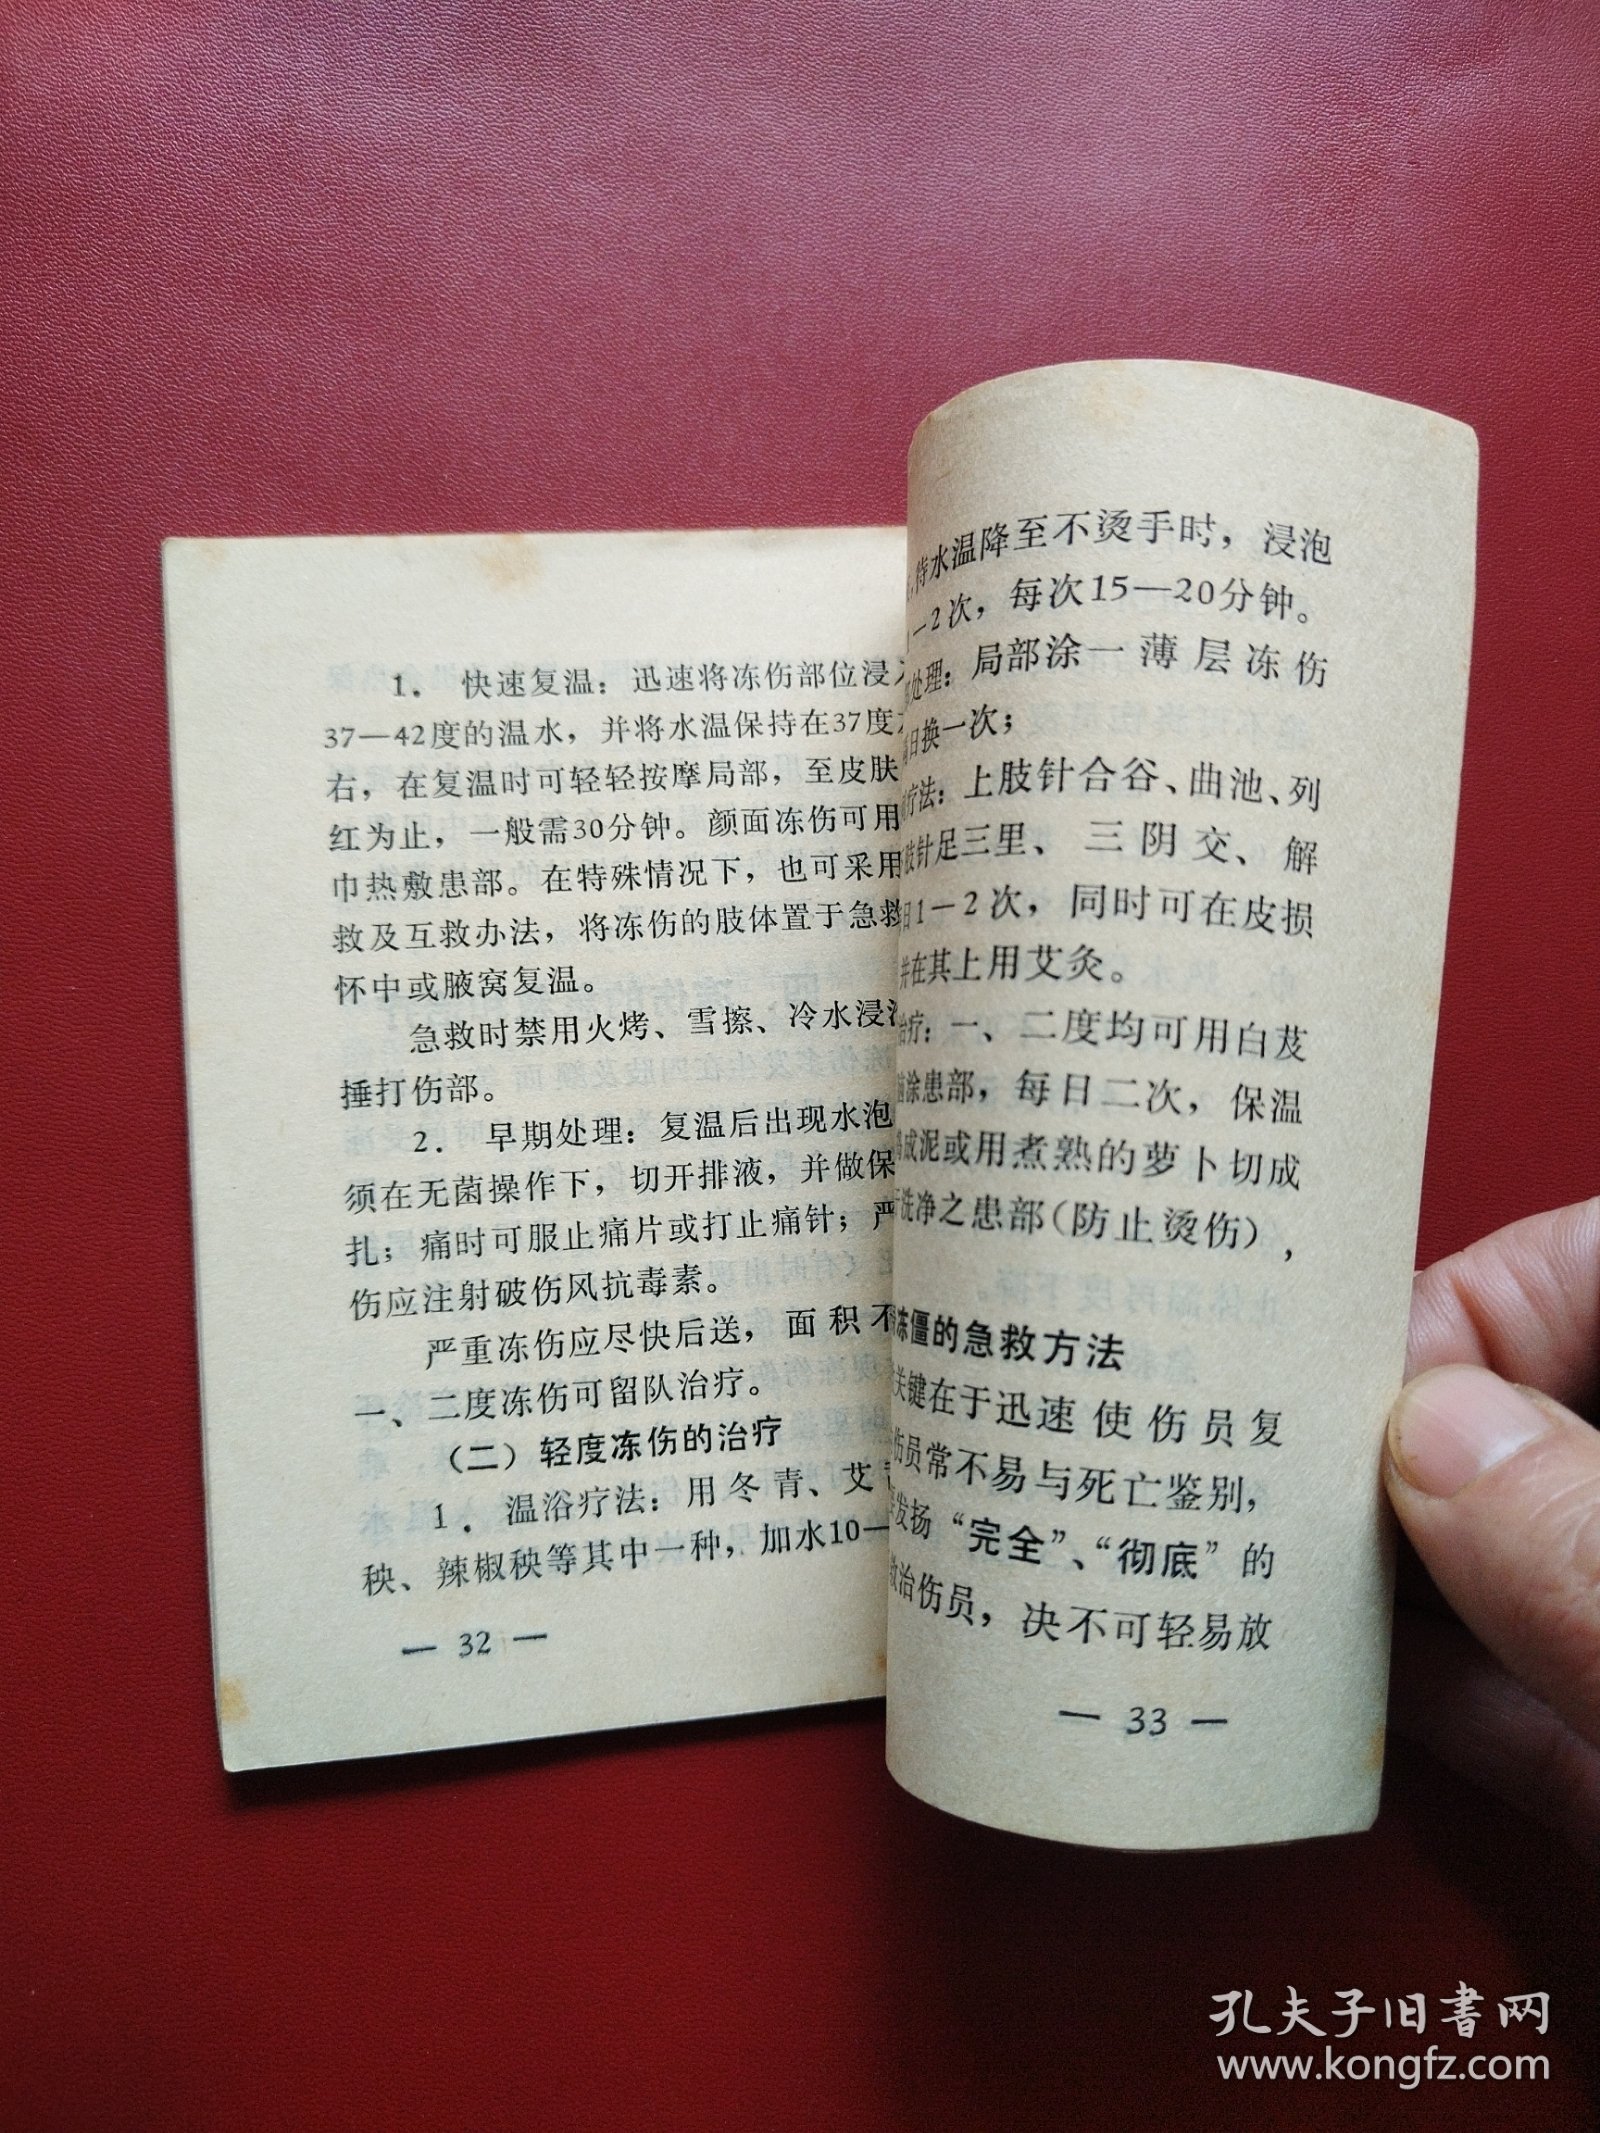 1. 快速复温：迅速将冻伤部位浸
37—42度的温水，并将水温保持在37度
右，在复温时可轻轻按摩局部，至皮肤
红为止，一般需30分钟。颜面冻伤可用
巾热敷患部。在特殊情况下，也可采用
救及互救办法，将冻伤的肢体置于急救
怀中或腋窝复温。
急救时禁用火烤、雪擦、冷水浸
捶打伤部。
2. 早期处理：复温后出现水泡
须在无菌操作下，切开排液，并做保
扎；痛时可服止痛片或打止痛针；严
伤应注射破伤风抗毒素。
严重冻伤应尽快后送，面积不
一、二度冻伤可留队治疗。
（二）轻度冻伤的治疗
1. 温浴疗法：用冬青、艾
秧、辣椒秧等其中一种，加水10—
— 32 —
待水温降至不烫手时，浸泡
—2次，每次15—20分钟。
处理：局部涂一薄层冻伤
日换一次；
疗法：上肢针合谷、曲池、列
肢针足三里、三阴交、解
日1－2次，同时可在皮损
并在其上用艾灸。
治疗：一、二度均可用白芨
涂患部，每日二次，保温
成泥或用煮熟的萝卜切成
洗净之患部（防止烫伤），
冻僵的急救方法
关键在于迅速使伤员复
伤员常不易与死亡鉴别，
发扬“完全”、“彻底”的
救治伤员，决不可轻易放
— 33 —
孔夫子旧书网
www.kongfz.com